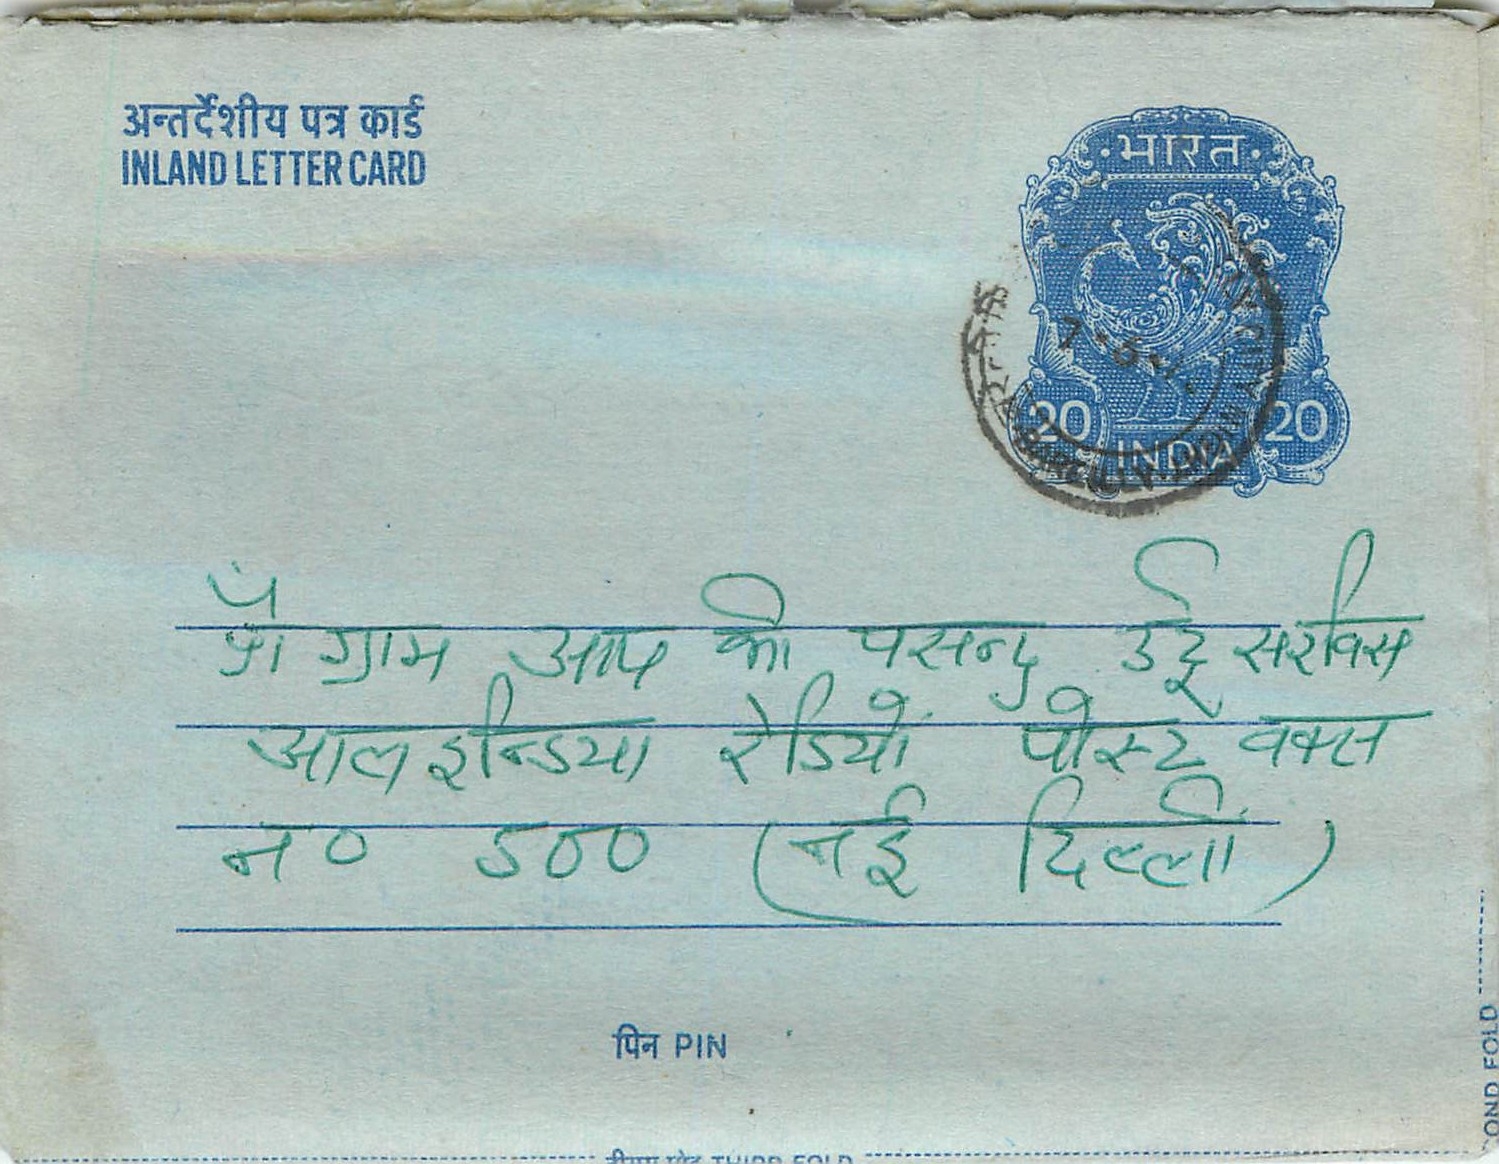 अन्तर्देशीय पत्र कार्ड
INLAND LETTER CARD
भारत
20 INDIA 20
BAREILLY
प्रोग्राम आप की पसन्द उर्दू सरविस
आल इन्डिया रेडियों पोस्ट वक्स
न० 500 (नई दिल्लीं)
पिन PIN
THIRD FOLD
OND FOLD